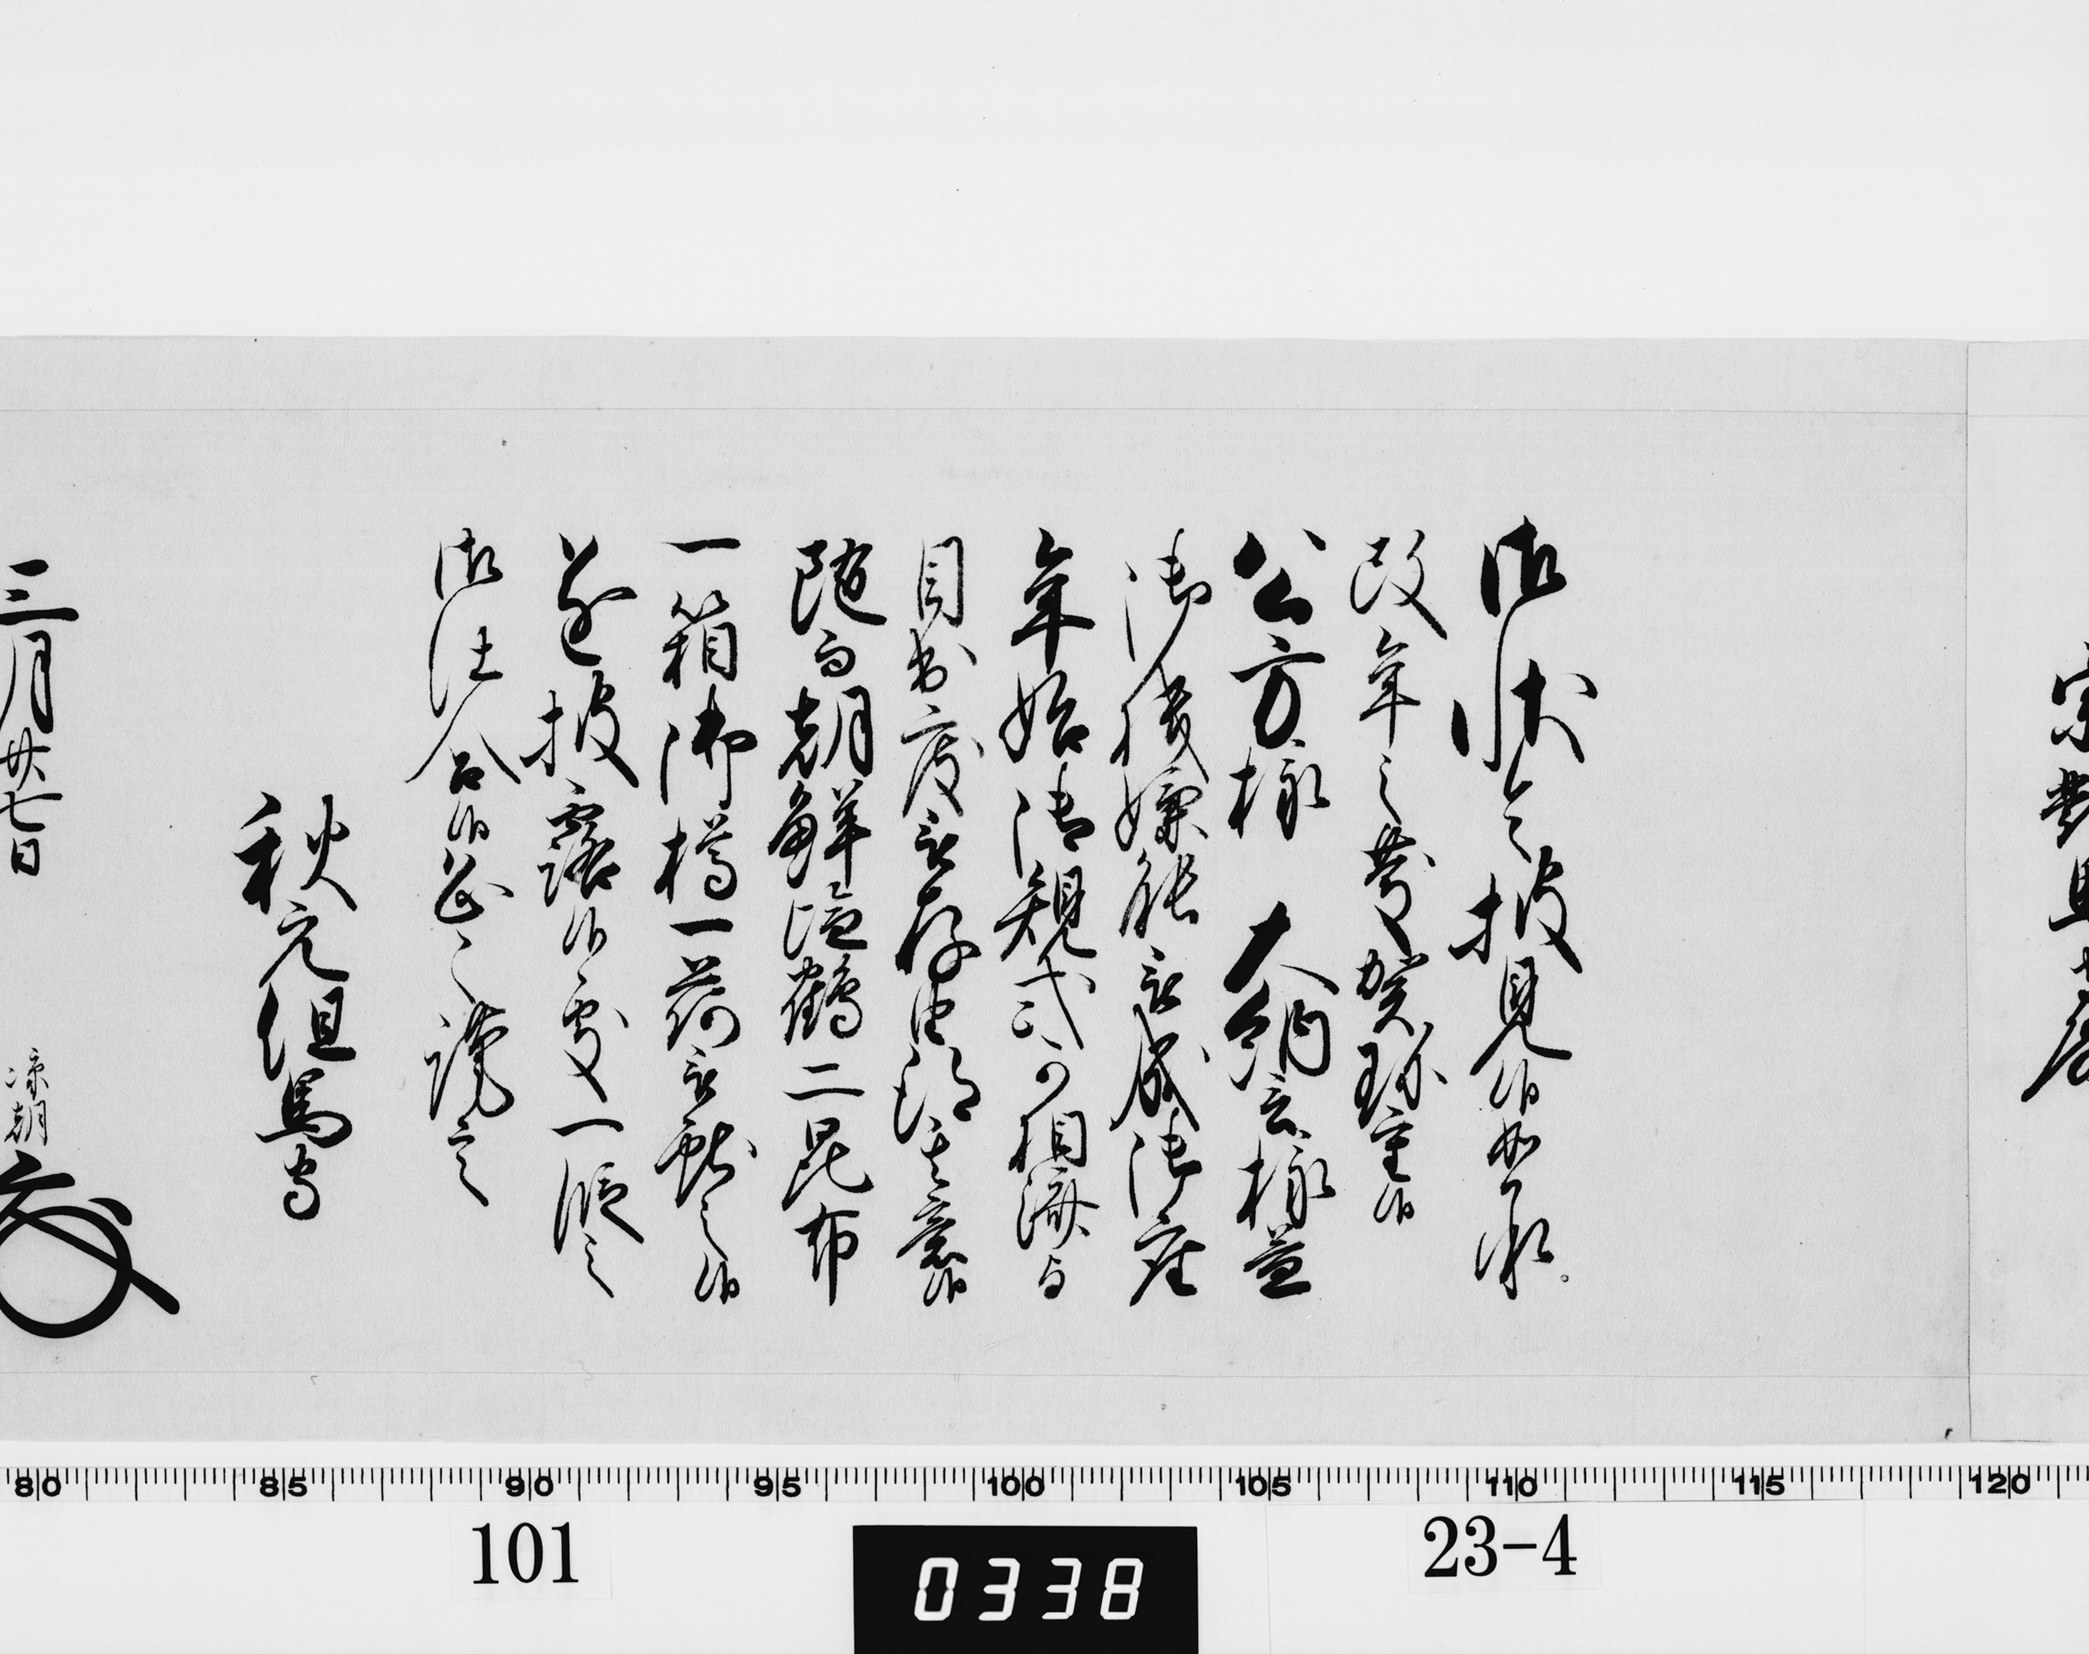 宗對馬守殿
御状令披見候如承
改年之慶賀珍重候
公方様 大納言様益
御機嫌能被成御座
年始御規式可相済与
目出度被存由得其意候
随而朝鮮塩鶴二昆布
一箱御樽一荷被献之候
遂披露候處一段之
御仕合候恐々謹言
秋元但馬守
三月廿七日 凉朝
80 85 90 95 100 105 110 115 120
101 0338 23-4